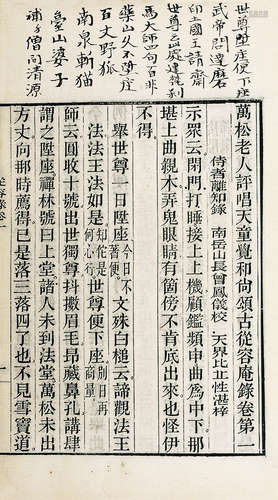 世尊陞座便下座
武帝問達磨
印土國王請齋
世尊立處建梵刹
馬大師四句百非
藥山久不陞座
百丈野狐
南泉斬猫
臺山婆子
僧問清源
萬松老人評唱天童覺和尚頌古從容庵錄卷第一
侍者離知錄 南岳山長曾鳳儀校 天界比丘性湛梓
示眾云閉門打睡接上上機顧鑑頻申曲為中下那
堪上曲親木弄鬼眼睛有箇傍不肯底出來也怪伊
不得
舉世尊一日陞座今日不著便文殊白槌云諦觀法王
法法王法如是知他是何心行世尊便下座別日再商量
師云圓收十號出世獨尊抖擻眉毛昂藏鼻孔講肆
謂之陞座禪林號曰上堂諸人未到法堂萬松未出
方丈向那時薦得已是落三落四了也不見雪竇道
從容錄卷一
一